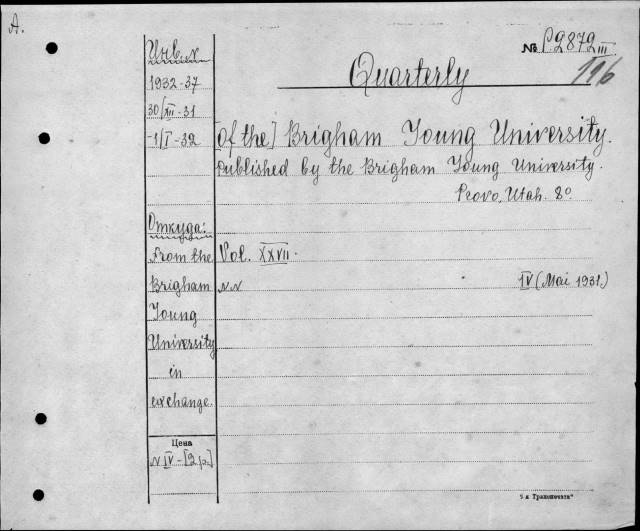 A.
Инв. N
1932-37
30/XII-31
-1/I-32
№ P.2872 III
196
Quarterly
[of the] Brigham Young University.
Published by the Brigham Young University.
Provo, Utah. 8º.
Откуда:
From the
Brigham
Young
University
in
exchange.
Vol. XXVII.
NN IV (Mai 1931.)
Цена
N IV-[2 р.]